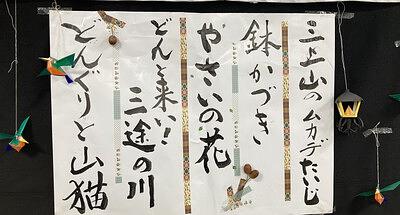 三上山のムカデたいじ
鉢かづき
やさいの花
どんと来い!
三途の川
どんぐりと山猫